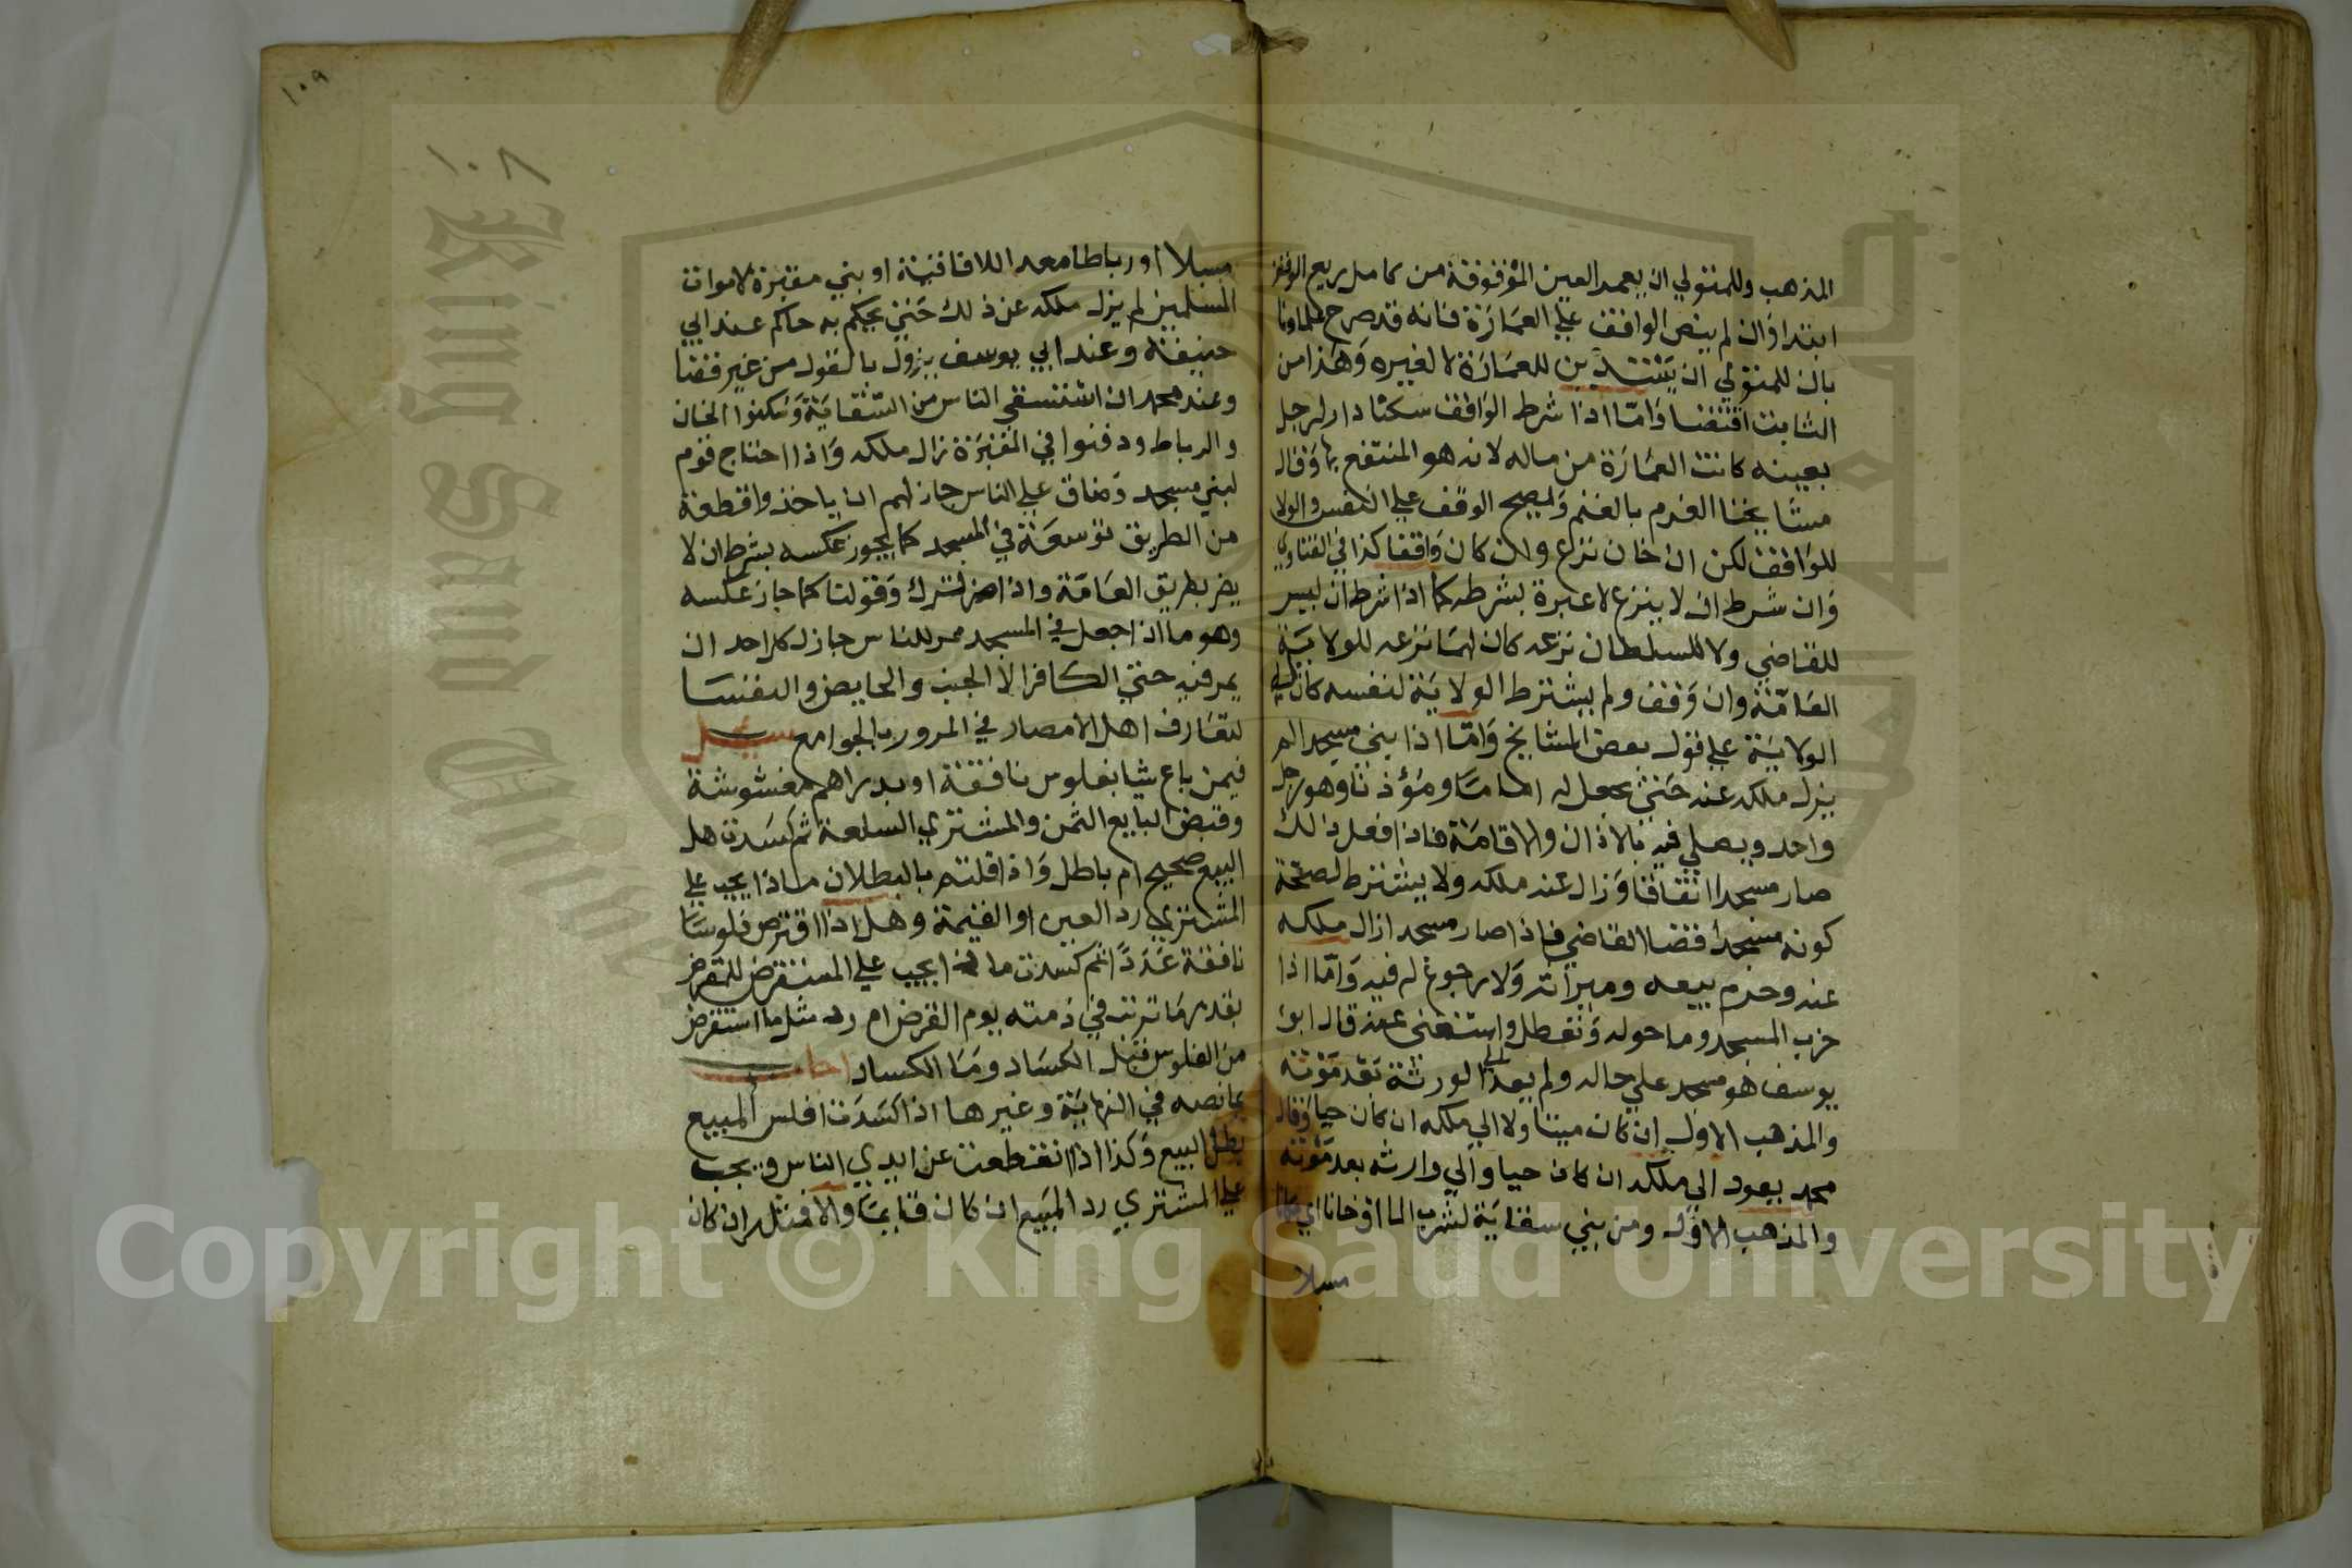 المذهب وللمتولي ان يعمر العين الموقوفة من كامل ريع الوقف
ابتدا وان لم ينص الواقف علي العمارة فانه قد صرح علماونا
بان للمتولي ان يستدين للعمارة لا لغيره وهذا من
الثابت اقتضا واما اذا شرط الواقف سكنا دار لرجل
بعينه كانت العمارة من ماله لانه هو المنتفع بها وقال
مشايخنا الغرم بالغنم وليصح الوقف علي النفس والولا
للواقف لكن ان خان نزع وان كان واقفا كذا في الفتاوي
وان شرط ان لا ينزع لا عبرة بشرطه كما اذا شرط ان ليس
للقاضي ولا للسلطان نزعه كان لهما نزعه للولاية
العامة وان وقف ولم يشترط الولاية لنفسه كان له
الولاية علي قول بعض المشايخ واما اذا بني مسجدا لم
يزل ملكه عنه حتي يجعل له اماما ومؤذنا وهو رجل
واحد ويصلي فيه بالاذان والاقامة فاذا فعل ذالك
صار مسجدا اتفاقا وزال عنه ملكه ولا يشترط لصحة
كونه مسجدا قضا القاضي فاذا صار مسجدا زال ملكه
عنه وحرم بيعه وميراثه ولا رجوع له فيه واما اذا
خرب المسجد وما حوله وتعطل واستغني عنه قال ابو
يوسف هو مسجد علي حاله ولم يعد الي الورثة بعد موته
والمذهب الاول ان كان ميتا ولا الي ملكه ان كان حيا وقال
محمد يعود الي ملكه ان كان حيا والي وارثه بعد موته
والمذهب الاول ومن بني سقاية لشرب الما او خانا اي مكانا
مسبلا
١٠٩
١٠٨
مسبلا او رباطا معدا للافاقية او بني مقبرة لاموات
المسلمين لم يزل ملكه عن ذلك حتي يحكم به حاكم عند ابي
حنيفة وعند ابي يوسف يزول بالقول من غير قضا
وعند محمد ان استسقي الناس من السقاية وسكنوا الخان
والرباط ودفنوا في المقبرة زال ملكه واذا احتاج قوم
لبني مسجد وضاق علي الناس جاز لهم ان ياخذوا قطعة
من الطريق توسعة في المسجد كما يجوز عكسه بشرط ان لا
يضر بطريق العامة واذا ضر لترك وقولنا كما جاز عكسه
وهو ما اذا جعل في المسجد ممر للناس جاز لكل احد ان
يمر فيه حتي الكافر الا الجنب والحايض والنفسا
لتعارف اهل الامصار في المرور بالجوامع سيل
فيمن باع شيا بفلوس نافقة او بدراهم مغشوشة
وقبض البايع الثمن والمشتري السلعة ثم كسدت هل
البيع صحيح ام باطل واذا قلتم بالبطلان ماذا يجب علي
المشتري رد العين او القيمة وهل اذا اقترض فلوسا
نافقة عددا ثم كسدت ما ذا يجب علي المستقرض للمقرض
بقدر ما ترتب في ذمته يوم القرض ام رد مثل ما استقرض
من الفلوس قبل الكساد وما الكساد اجاب
بما نصه في النهاية وغيرها اذا كسدت افلس المبيع
بطل البيع وكذا اذا انقطعت عن ايدي الناس ويجب
علي المشتري رد المبيع ان كان قايما والا فمثله ان كان
Copyright © King Saud University
King Saud University